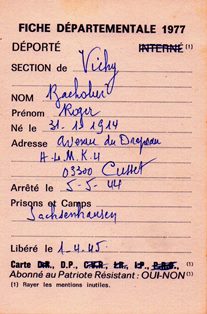 FICHE DÉPARTEMENTALE 1977
DÉPORTÉ INTERNÉ (1)
SECTION de Vichy
NOM
Prénom Roger
Né le 31. 1914
Adresse avenue du Drapeau
A-4 M.K-4
03300 Cusset
Arrêté le 5-5-44
Prisons et Camps
Sachsenhausen
Libéré le 1-4-45
Carte D.R., D.P., C.V.R., I.R., I.P., P.R.O., (1)
Abonné au Patriote Résistant : OUI-NON (1)
(1) Rayer les mentions inutiles.